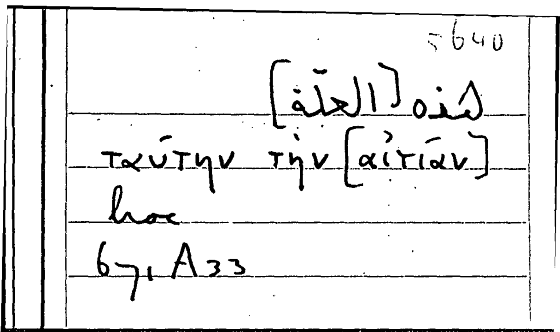 5640
هذه [العلّة]
ταύτην τὴν [αἰτίαν]
hoc
671 A 33